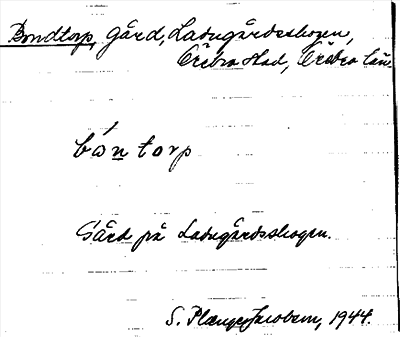 Bondtorp, gård, Ladugårdsskogen,
Örebro stad, Örebro län.
bóntorp
Gård på Ladugårdsskogen.
S. Jacobsen, 1944.